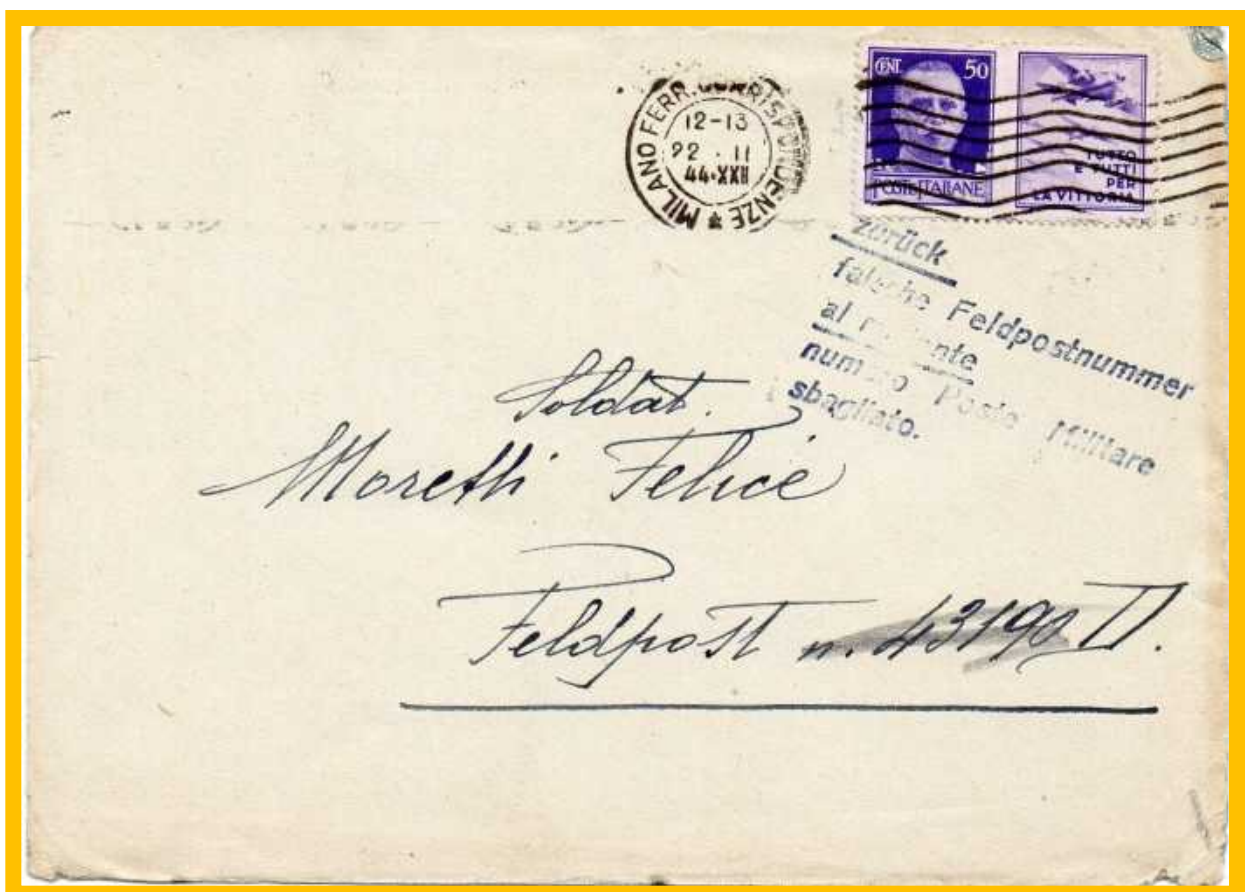 MILANO FERR. CORRISPONDENZE *
12-13
22 . II
44-XXII
CENT. 50
POSTE ITALIANE
TUTTO
E TUTTI
PER
LA VITTORIA
zurück
falsche Feldpostnummer
al mittente
numero Posta Militare
sbagliato.
Soldat.
Moretti Felice
Feldpost n. 43190 II.